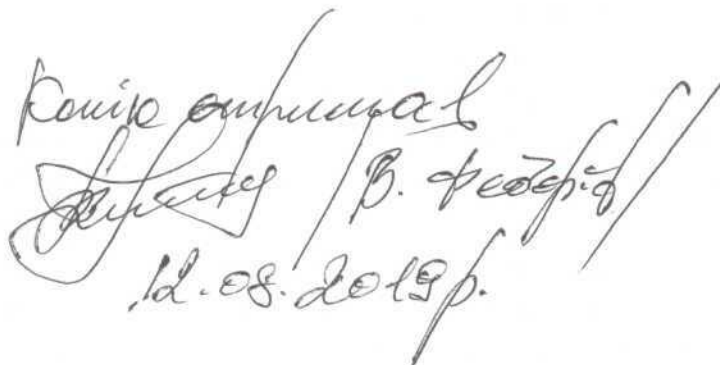 Копію отримав
/ В. Федорів /
12.08.2019р.